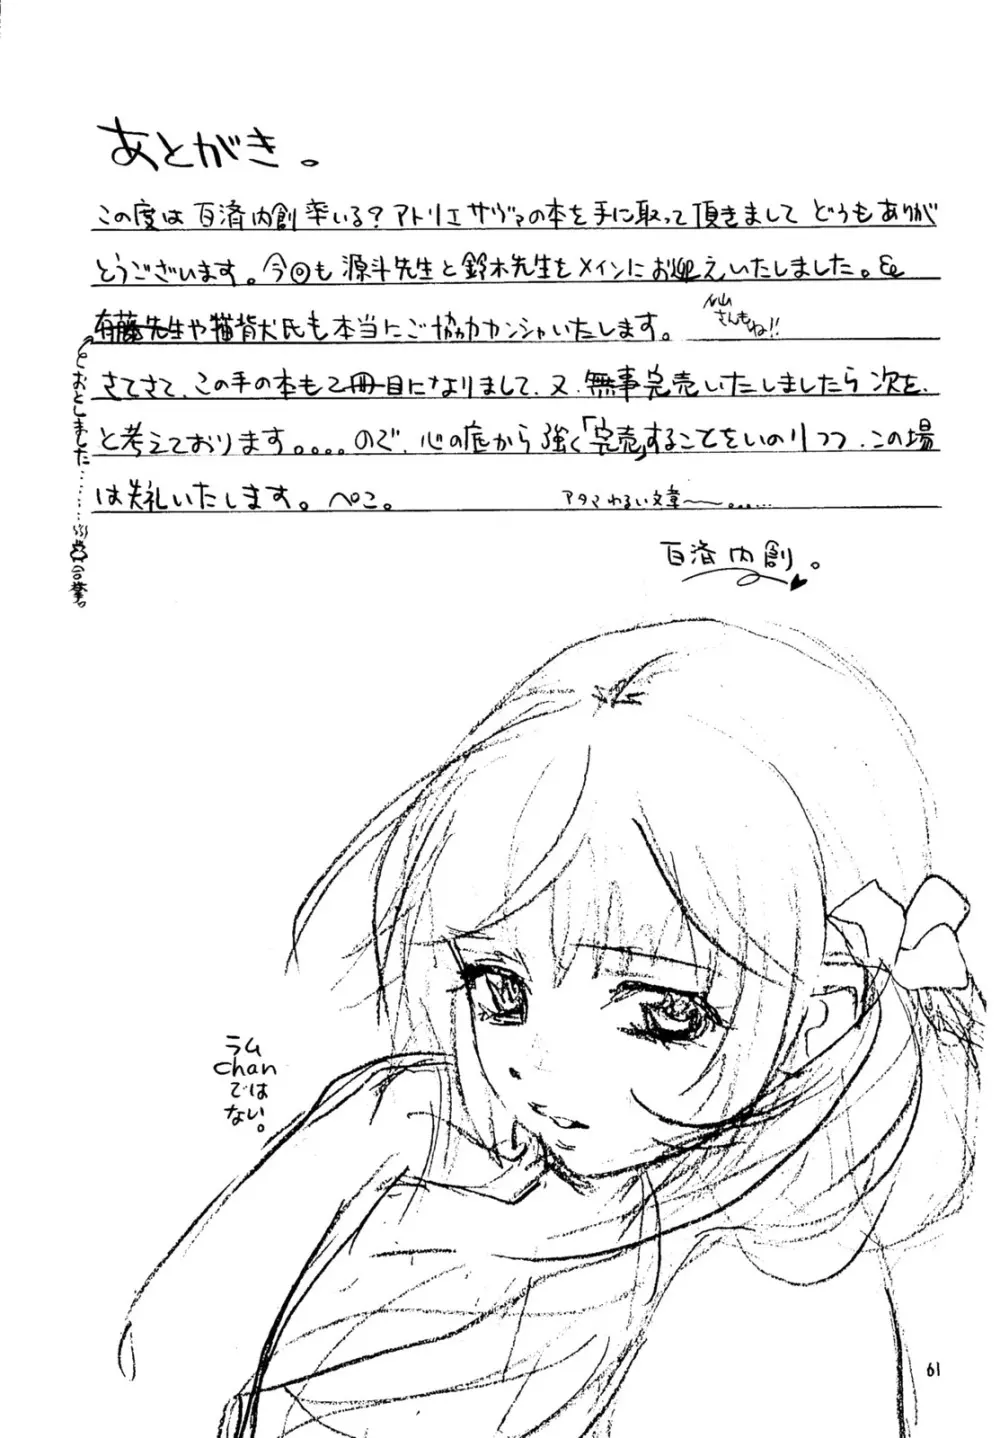 あとがき。
この度は百済内創率いる?アトリエサヴァの本を手に取って頂きましてどうもありが
とうございます。今回も源斗先生と鈴木先生をメインにお迎えいたしました。&
有藤先生や猫背犬氏も本当にご協力カンシャいたします。
さんもね!!
さてさて、この手の本も2冊目になりまして、又、無事完売いたしましたら次を、
と考えております。。。。ので、心の底から強く「完売」することをいのりつつ、この場
は失礼いたします。ぺこ。
アタマわるい文章〜〜。……
おとしました……
百済内創。
ラム
chan
では
ない。
61